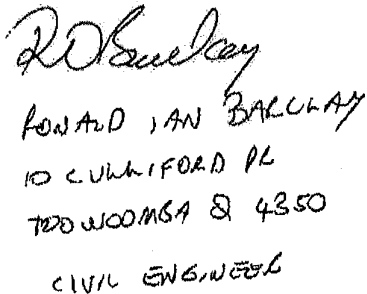 RDBarclay
RONALD IAN BARCLAY
10 CULLIFORD PL
TOOWOOMBA Q 4350
CIVIL ENGINEER